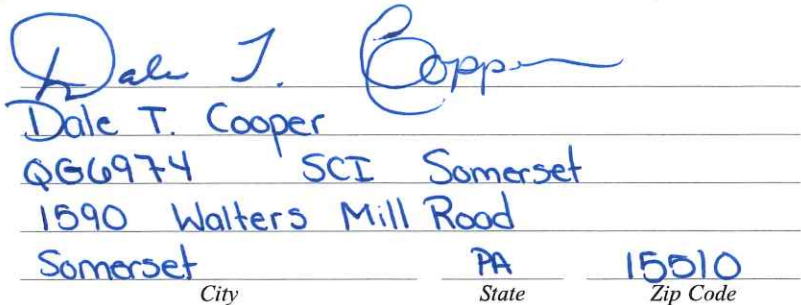 Dale T. Cooper
Dale T. Cooper
QG6974 SCI Somerset
1590 Walters Mill Road
Somerset PA 15510
City State Zip Code